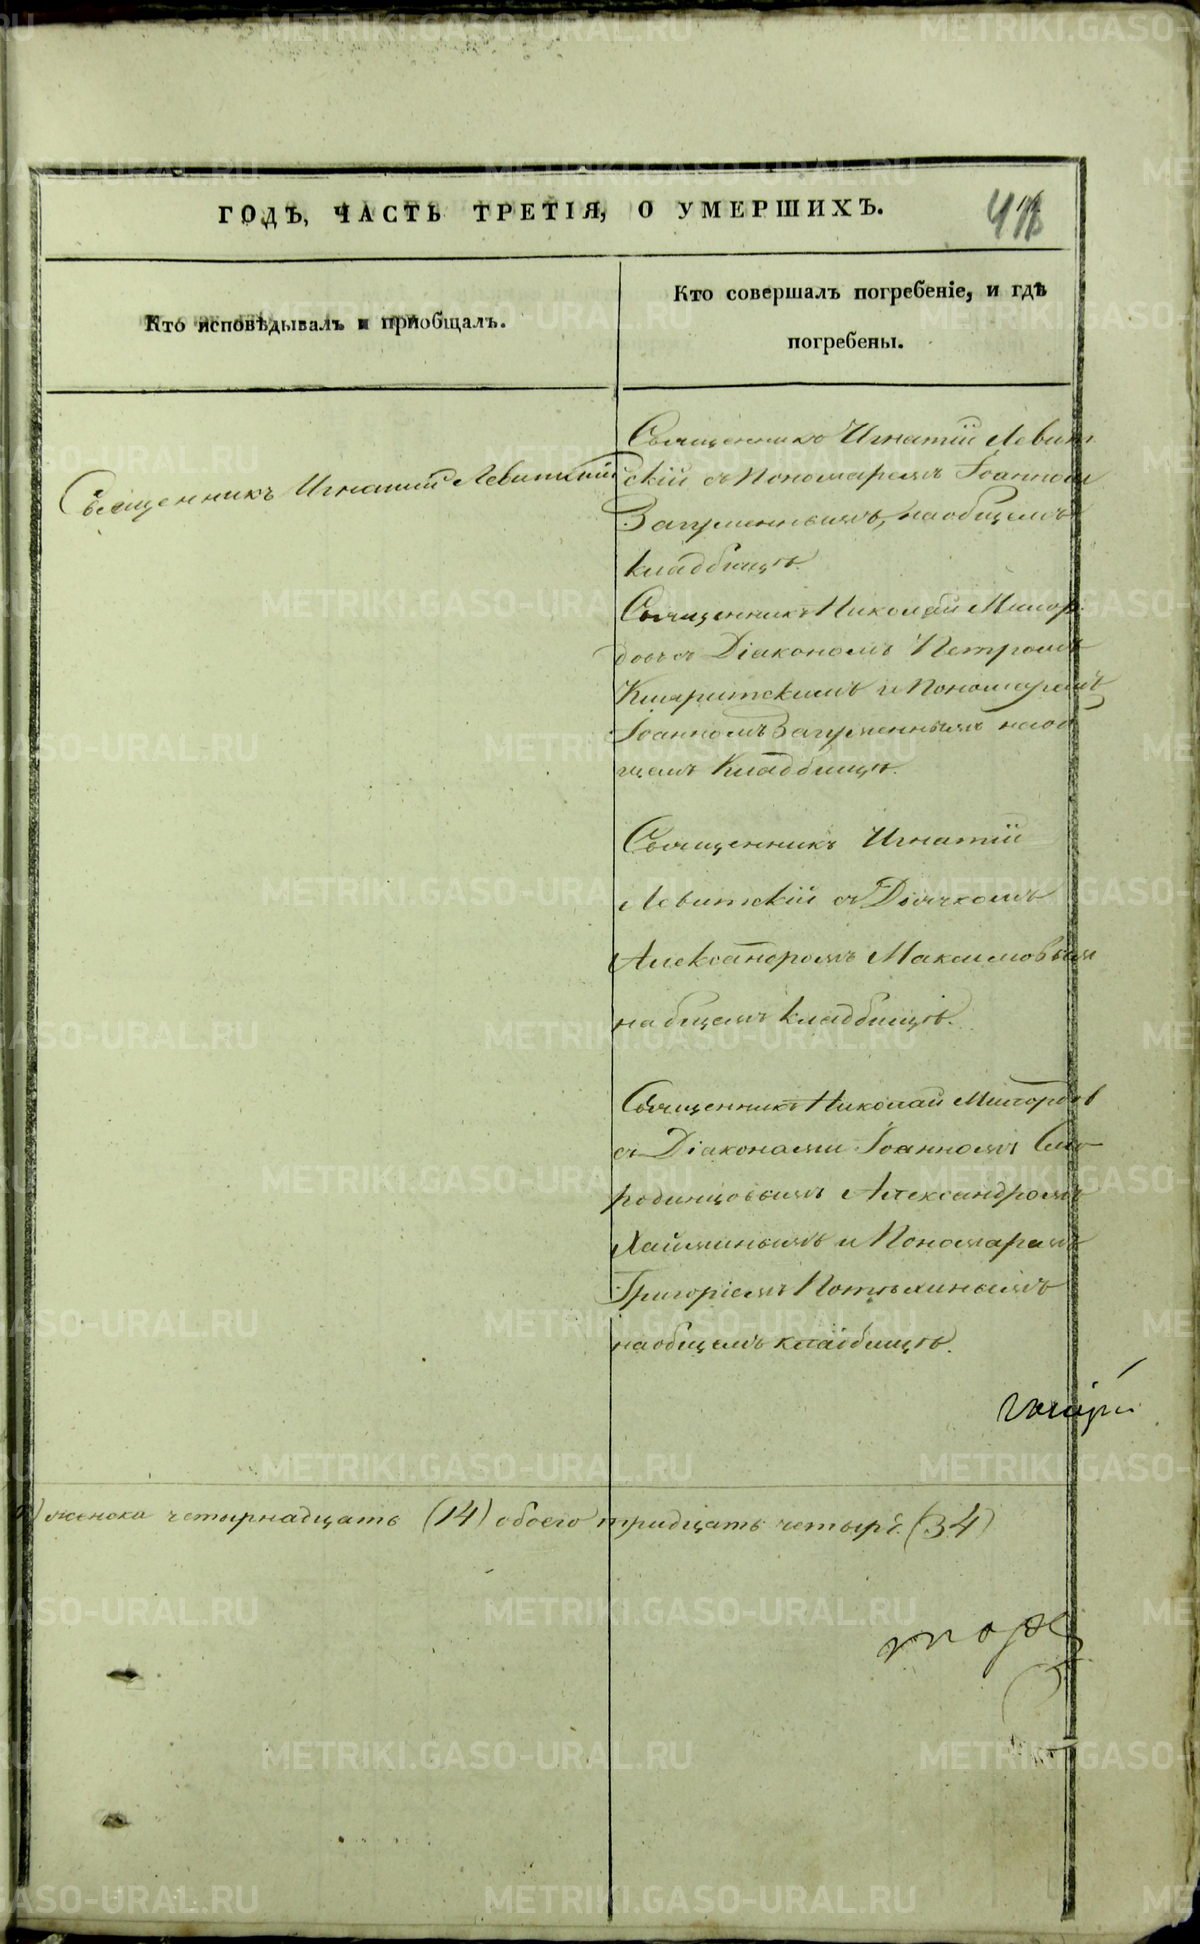 ГОДЪ, ЧАСТЬ ТРЕТІЯ, О УМЕРШИХЪ.
Кто исповѣдывалъ и пріобщалъ.
Кто совершалъ погребеніе, и гдѣ
погребены.
Священникъ Игнатій Левитскій
Священникъ Игнатій Левит
скій съ Пономаремъ Іоанномъ
Загуменнымъ, на общемъ
кладбищѣ.
Священникъ Николай
съ Діакономъ Петромъ
и Пономаремъ
Іоанномъ Загуменнымъ на об
щемъ Кладбищѣ.
Священникъ Игнатій
Левитскій съ Дьячкомъ
Александромъ Максимовым
на бщемъ кладбищѣ.
Священникъ Николай
съ Діаконами Іоанномъ Смо
родинцовымъ Александромъ
Хайминымъ и Пономаремъ
Григоріемъ
на общемъ кладбищѣ.
женска четырнадцать (14) обоего тридцать четыре (34)
METRIKI.GASO-URAL.RU